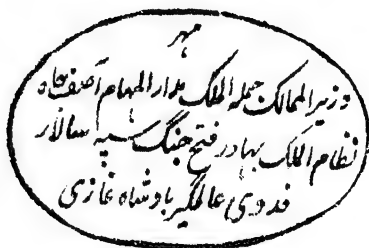 مہر
وزیر الممالک جملۃ الملک مدار المہام آصف جاہ
نظام الملک بہادر فتح جنگ سپہ سالار
فدوی عالمگیر بادشاہ غازی